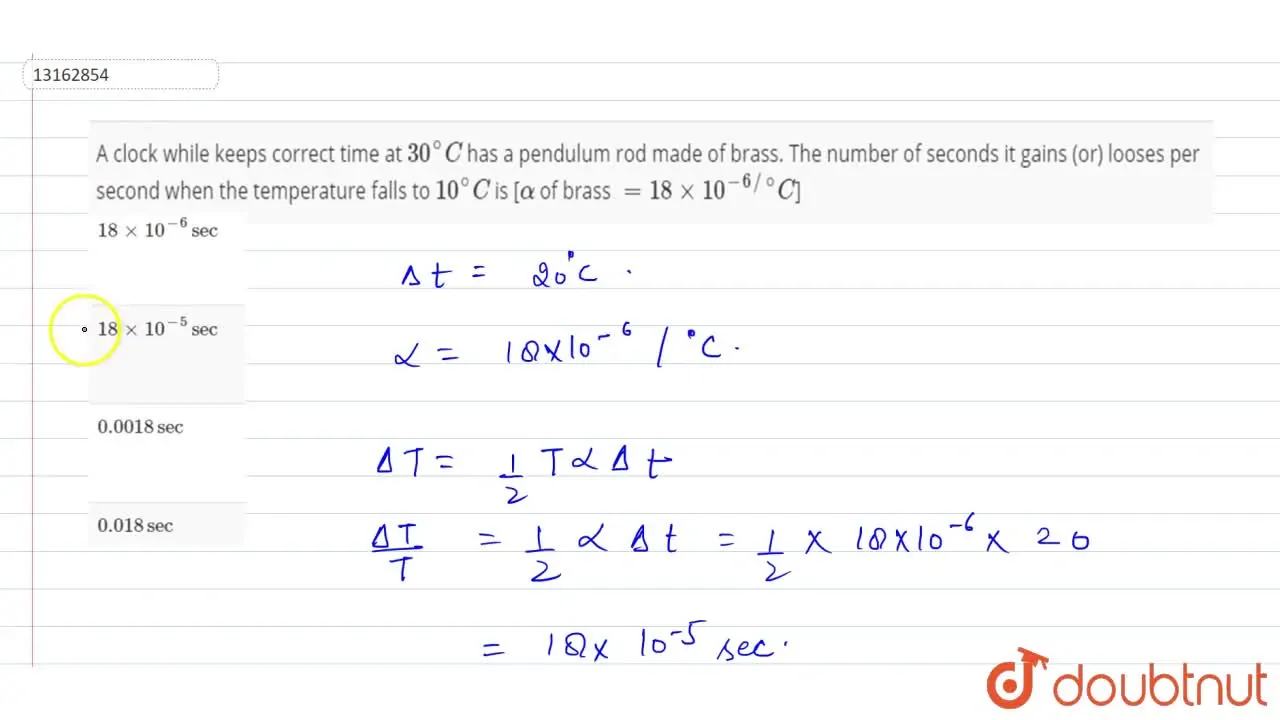 13162854
A clock while keeps correct time at 30°C has a pendulum rod made of brass. The number of seconds it gains (or) looses per
second when the temperature falls to 10°C is [α of brass = 18 × 10^{-6/°}C]
18 × 10^{-6} sec
Δt = 20°C .
18 × 10^{-5} sec
α = 18×10^{-6} /°C.
0.0018 sec
ΔT = 1/2 TαΔt
0.018 sec
ΔT/T = 1/2 αΔt = 1/2 × 18×10^{-6} × 20
= 18× 10^{-5} sec.
doubtnut